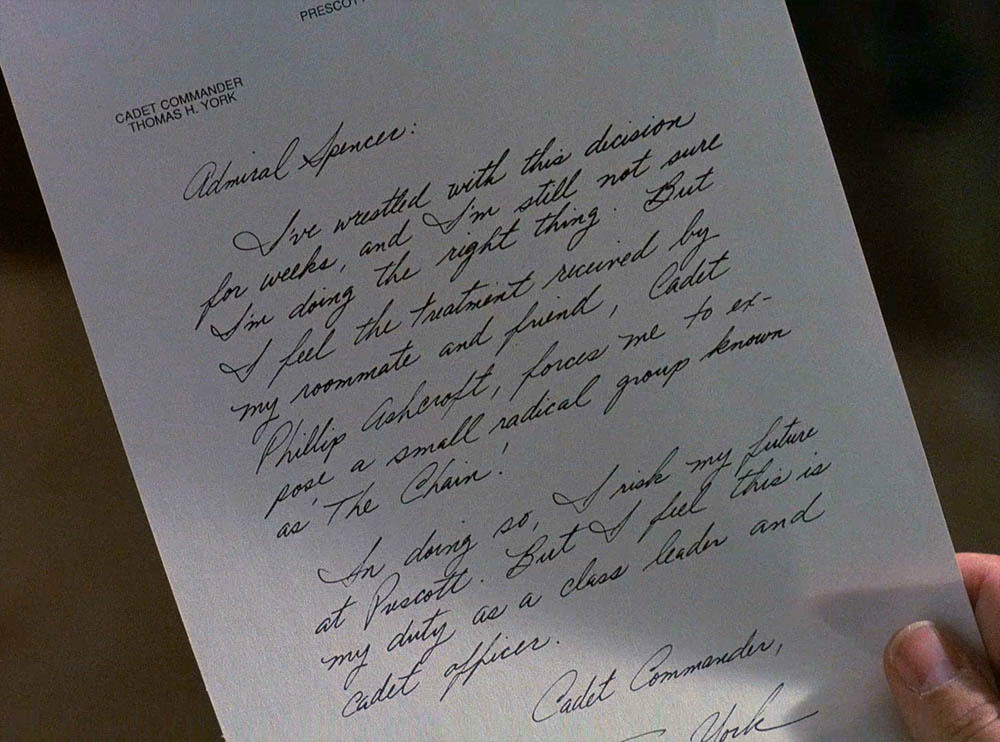 PRESCOTT
CADET COMMANDER
THOMAS H. YORK
Admiral Spencer:
I've wrestled with this decision
for weeks, and I'm still not sure
I'm doing the right thing. But
I feel the treatment received by
my roommate and friend, Cadet
Phillip Ashcroft, forces me to ex-
pose a small radical group known
as 'The Chain.'
In doing so, I risk my future
at Prescott. But I feel this is
my duty as a class leader and
cadet officer.
Cadet Commander,
York